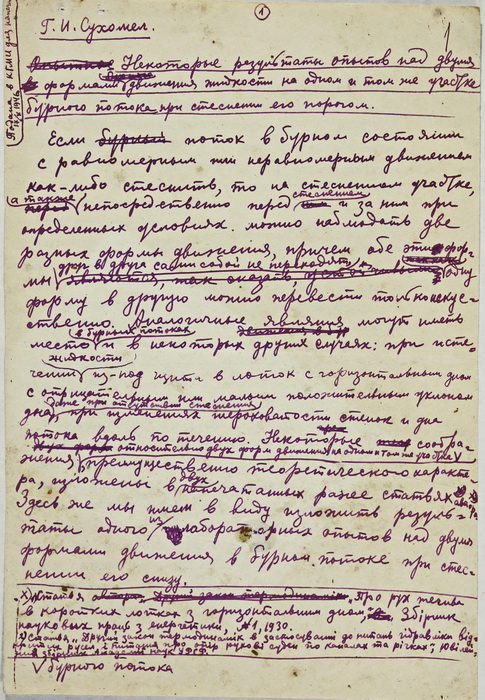 1
1
Подана в КГМИ для напеч
Г. И. Сухомел.
Некоторые результаты опытов над двумя
формами движения жидкости на одном и том же участке
бурного потока при стеснении его порогом.
Если бурный поток в бурном состоянии
с равномерным или неравномерным движением
как-либо стеснить, то на стесненном участке,
а также непосредственно перед стеснением и за ним при
определенных условиях можно наблюдать две
разных формы движения, причем обе эти фор-
мы друг в друга сами собой не переходят, одну
форму в другую можно перевести только искус-
ственно. Аналогичные явления могут иметь
место в бурных потоках и в некоторых других случаях: при исте-
чении жидкости из-под щита в лоток с горизонтальным дном
с отрицательным или малым положительным уклоном
дна, даже при отсутствии стеснения при изменениях шероховатости стенок и дна
потока вдоль по течению. Некоторые сообра-
жения относительно двух форм движения на одном и том же участке
преимущественно теоретического характе-
ра, изложены в двух напечатанных ранее статьях
Здесь же мы имеем в виду изложить резуль-
таты одного из лабораторных опытов над двумя
формами движения в бурном потоке при стес-
нении его снизу.
x) Статья „Про рух течива
в коротких лотках з горизонтальним дном", Збірник
наукових праць з енергетики, №1, 1930.
Статья „Другий закон термодинаміки в застосуванні до питань гідравліки від-
критих русел і питання про опір рухові суден по каналах та річках", Ювілей-
ний збірник Академії наук УРСР.
V бурного потока